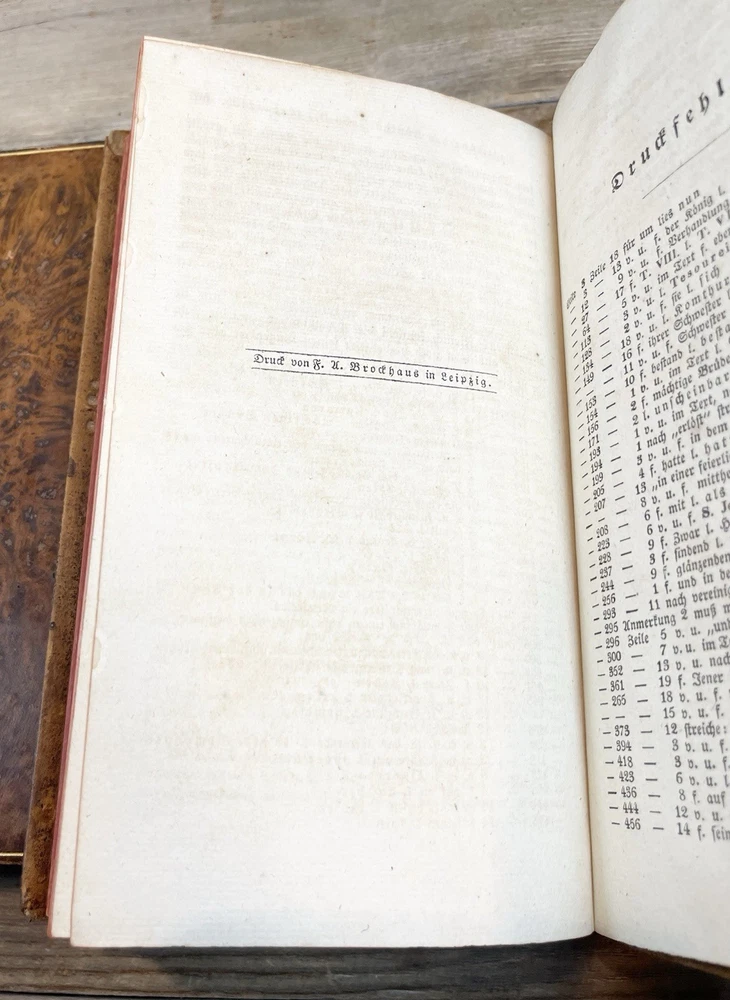 Druck von F. A. Brockhaus in Leipzig.
Druckfehl
Seite 3 Zeile 18 für um lies nun
— 3 — 13 v. u. f. der König l.
— 12 — 9 v. u. f. Verhandlung
— 27 — 17 f. T. VIII. l. T. V
— 64 — 5 v. u. im Text f. eben
— 113 — 3 v. u. l. Tesoure
— 128 — 2 v. u. f. sie l. sich
— 134 — 18 v. u. l. Komthur
— 149 — 16 f. ihrer Schwester
— — 11 v. u. f. Schwester
— 153 — 10 f. bestand l. besta
— 154 — 1 v. u. im Text l.
— 156 — 2 f. mächtige Brüde
— 171 — 2 l. unscheinbar
— 193 — 1 v. u. im Text, n
— 194 — 1 nach „erlöst“ stre
— 199 — 3 v. u. f. in dem
— 205 — 4 f. hatte l. hat
— 207 — 13 „in einer feierli
— — 8 v. u. f. mitthe
— 208 — 6 f. mit l. als
— 223 — 6 v. u. f. S. Je
— 228 — 9 f. Zwar l. H
— 237 — 3 f. findend l.
— 244 — 9 f. glänzenden
— 256 — 1 f. und in de
— 293 — 11 nach vereinig
— 295 Anmerkung 2 muß
— 296 Zeile 5 v. u. „un
— 300 — 7 v. u. im Te
— 352 — 13 v. u. nach
— 361 — 19 f. Jener
— 265 — 18 v. u. f.
— — 15 v. u. f.
— 373 — 12 streiche:
— 394 — 3 v. u. f.
— 418 — 3 v. u. f.
— 423 — 6 v. u. l.
— 436 — 8 f. auf
— 444 — 12 v. u.
— 456 — 14 f. sein